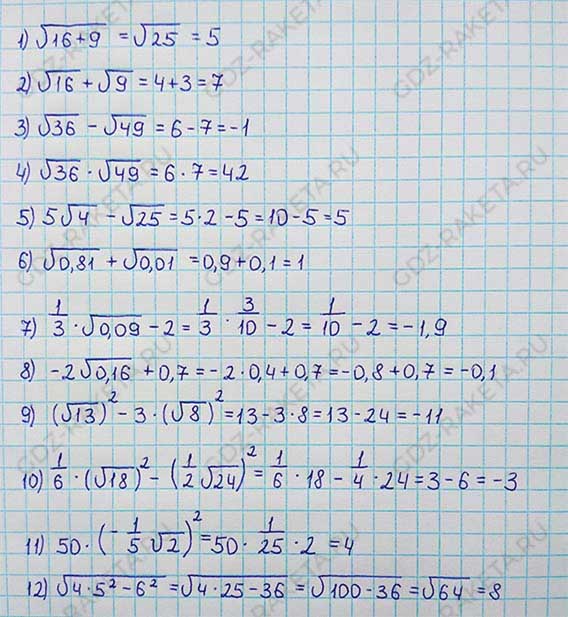 1) √16+9 = √25 = 5
2) √16 + √9 = 4+3 = 7
3) √36 - √49 = 6 - 7 = -1
4) √36 · √49 = 6 · 7 = 42
5) 5√4 - √25 = 5·2 - 5 = 10 - 5 = 5
6) √0,81 + √0,01 = 0,9 + 0,1 = 1
7) 1/3 · √0,09 - 2 = 1/3 · 3/10 - 2 = 1/10 - 2 = -1,9
8) -2√0,16 + 0,7 = -2·0,4 + 0,7 = -0,8 + 0,7 = -0,1
9) (√13)² - 3·(√8)² = 13 - 3·8 = 13 - 24 = -11
10) 1/6 · (√18)² - (1/2 √24)² = 1/6 · 18 - 1/4 · 24 = 3 - 6 = -3
11) 50 · (- 1/5 √2)² = 50 · 1/25 · 2 = 4
12) √4·5² - 6² = √4·25 - 36 = √100 - 36 = √64 = 8
GDZ-RAKETA.RU